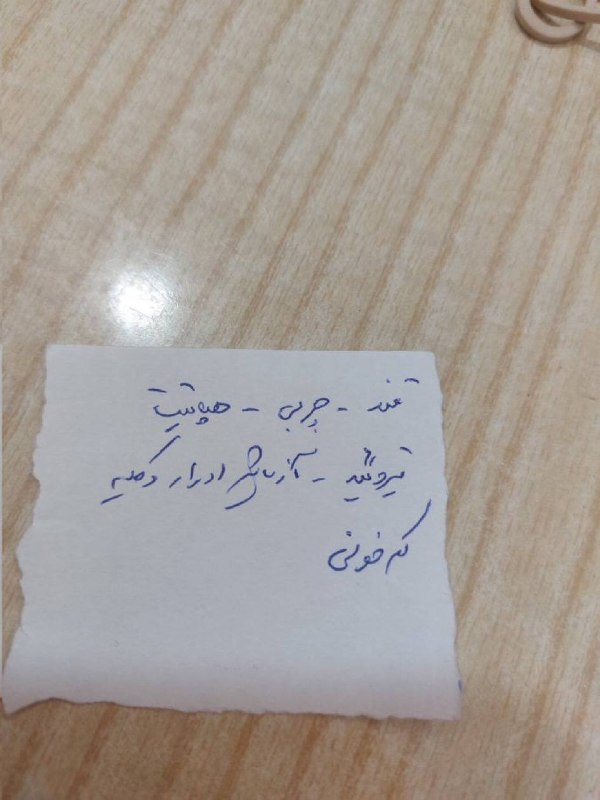 قند - چربی - هپاتیت
تیروئید - آزمایش ادرار و کلیه
کم خونی